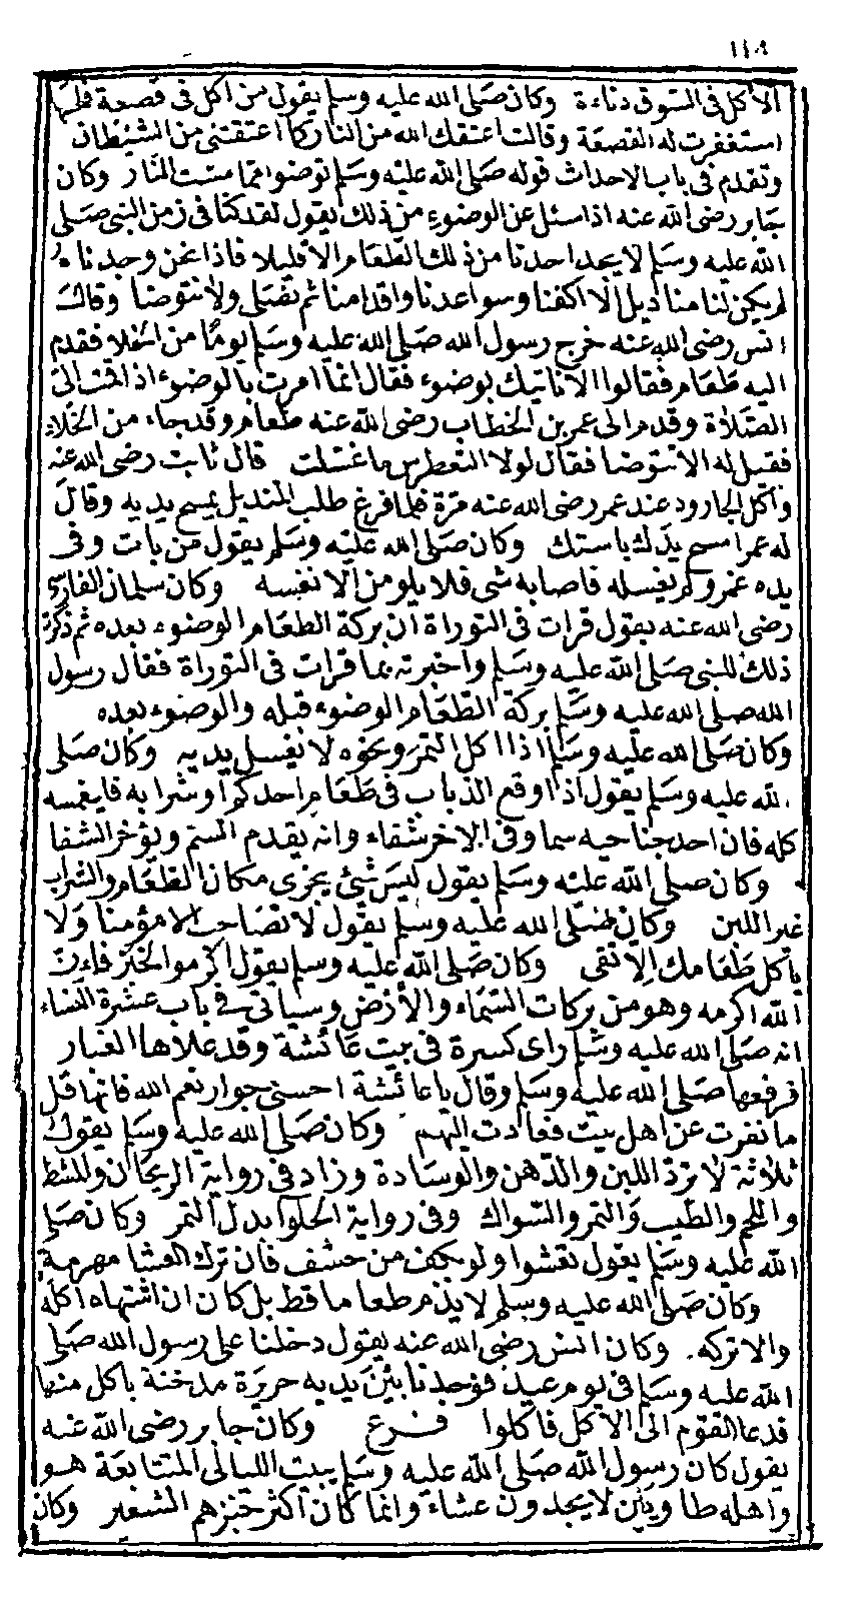 ١١٨
الاكل فى السوق دناءة وكان صلى الله عليه وسلم يقول من اكل فى قصعة فلحسها
استغفرت له القصعة وقالت اعتقك الله من النار كما اعتقتنى من الشيطان
وتقدم فى باب الاحداث قوله صلى الله عليه وسلم توضوا مما مست النار وكان
جابر رضى الله عنه اذا سئل عن الوضوء من ذلك يقول لقد كنا فى زمن النبى صلى
الله عليه وسلم لا يجد احدنا من ذلك الطعام الا قليلا فاذا نحن وجدناه
لم يكن لنا مناديل الا اكفنا وسواعدنا واقدامنا ثم نصلى ولا نتوضا وقال
انس رضى الله عنه خرج رسول الله صلى الله عليه وسلم يوما من الخلا فقدم
اليه طعام فقالوا الا ناتيك بوضوء فقال انما امرت بالوضوء اذا قمت الى
الصلاة وقدم الى عمر بن الخطاب رضى الله عنه طعام وقد جاء من الخلاء
فقيل له الا تتوضا فقال لولا التعطرس ما غسلت قال ثابت رضى الله عنه
واكل الجارود عند عمر رضى الله عنه مرة فلما فرغ طلب المنديل يمسح يديه وقال
له عمر امسح يدك باستك وكان صلى الله عليه وسلم يقول من بات وفى
يده غمر ولم يغسله فاصابه شى فلا يلومن الا نفسه وكان سلمان الفارسى
رضى الله عنه يقول قرات فى التوراة ان بركة الطعام الوضوء بعده ثم ذكرت
ذلك للنبى صلى الله عليه وسلم واخبرته بما قرات فى التوراة فقال رسول
الله صلى الله عليه وسلم بركة الطعام الوضوء قبله والوضوء بعده
وكان صلى الله عليه وسلم اذا اكل التمر ونحوه لا يغسل يديه وكان صلى
لله عليه وسلم يقول اذا وقع الذباب فى طعام احدكم او شرابه فليغمسه
كله فان احد جناحيه سما وفى الاخر شفاء وانه يقدم السم ويؤخر الشفا
وكان صلى الله عليه وسلم يقول ليس شئ يجزى مكان الطعام والشراب
غير اللبن وكان صلى الله عليه وسلم يقول لا تصاحب الا مؤمنا ولا
ياكل طعامك الا تقى وكان صلى الله عليه وسلم يقول اكرموا الخبز فان
الله اكرمه وهو من بركات السماء والأرض وسياتى فى باب عشرة النساء
انه صلى الله عليه وسلم راى كسرة فى بيت عائشة وقد علاها الغبار
فرفعها صلى الله عليه وسلم وقال يا عائشة احسنى جوار نعم الله فانها قل
ما نفرت عن اهل بيت فعادت اليهم وكان صلى الله عليه وسلم يقول
ثلاثة لا ترد اللبن والدهن والوسادة وزاد فى رواية الريحان والمشط
واللحم والطيب والتمر والسواك وفى رواية الحلوا بدل التمر وكان صلى
الله عليه وسلم يقول تعشوا ولو بكف من حشف فان ترك العشا مهرمة
وكان صلى الله عليه وسلم لا يذم طعاما قط بل كان ان اشتهاه اكله
والا تركه. وكان انس رضى الله عنه يقول دخلنا على رسول الله صلى
الله عليه وسلم فى يوم عيد فوجدنا بين يديه حريرة مدخنة ياكل منها
فدعا القوم الى الاكل فاكلوا فــرع وكان جابر رضى الله عنه
يقول كان رسول الله صلى الله عليه وسلم يبيت الليالى المتتابعة هو
واهله طاويين لا يجدون عشاء وانما كان اكثر خبزهم الشعير وكان